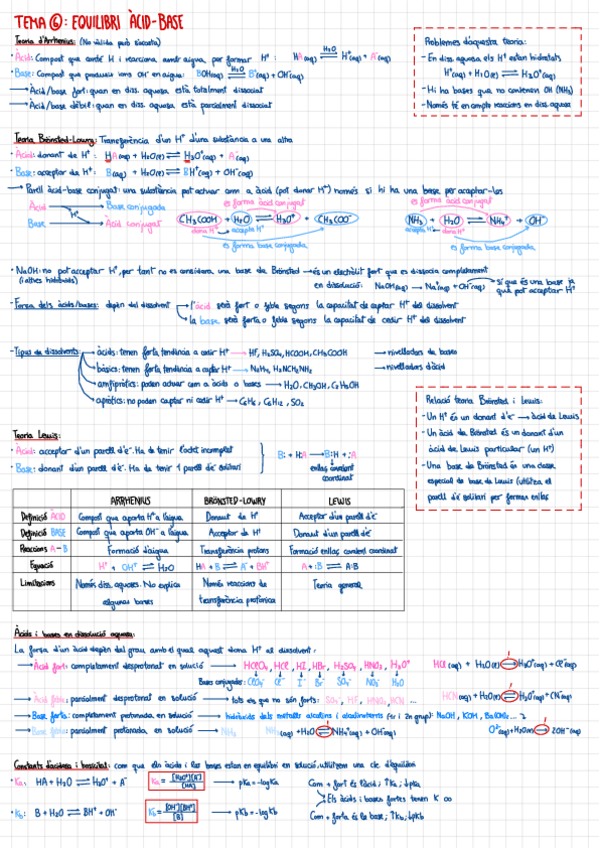 TEMA 6: EQUILIBRI ÀCID-BASE
Teoria d'Arrhenius: (No vàlida però s'accepta)
· Àcid: Compost que conté H i reacciona amb aigua per formar H⁺: HA(aq) →H₂O H⁺(aq) + A⁻(aq)
· Base: Compost que produeix ions OH⁻ en aigua: BOH(aq) →H₂O B⁺(aq) + OH⁻(aq)
→ Àcid/base fort: quan en diss. aquosa està totalment dissociat
→ Àcid/base dèbil: quan en diss. aquosa està parcialment dissociat
Problemes d'aquesta teoria:
- En diss. aquosa els H⁺ estan hidratats
H⁺(aq) + H₂O(l) ⇌ H₃O⁺(aq)
- Hi ha bases que no contenen OH (NH₃)
- Només té en compte reaccions en diss. aquosa
Teoria Brönsted-Lowry: Transferència d'un H⁺ d'una substància a una altra
· Àcid: donant de H⁺: HA(aq) + H₂O(l) ⇌ H₃O⁺(aq) + A⁻(aq)
· Base: acceptor de H⁺: B(aq) + H₂O(l) ⇌ BH⁺(aq) + OH⁻(aq)
→ Parell àcid-base conjugat: una substància pot actuar com a àcid (pot donar H⁺) només si hi ha una base per acceptar-los
Àcid → Base conjugada
H⁺
Base → Àcid conjugat
es forma àcid conjugat
CH₃COOH + H₂O ⇌ H₃O⁺ + CH₃COO⁻
dona H⁺ accepta H⁺
es forma base conjugada
es forma àcid conjugat
NH₃ + H₂O ⇌ NH₄⁺ + OH⁻
accepta H⁺ dona H⁺
es forma base conjugada
· NaOH: no pot acceptar H⁺, per tant no es considera una base de Brönsted → és un electròlit fort que es dissocia completament
(i altres hidròxids)
en dissolució: NaOH(aq) → Na⁺(aq) + OH⁻(aq) Sí que és una base ja
que pot acceptar H⁺
- Força dels àcids/bases: depèn del dissolvent → l'àcid serà fort o feble segons la capacitat de captar H⁺ del dissolvent
→ la base serà forta o feble segons la capacitat de cedir H⁺ del dissolvent
- Tipus de dissolvents
àcids: tenen forta tendència a cedir H⁺ → HF, H₂SO₄, HCOOH, CH₃COOH → nivelladors de bases
bàsics: tenen forta tendència a captar H⁺ → → nivelladors d'àcid
amfipròtics: poden actuar com a àcids o bases → H₂O, CH₃OH, C₂H₅OH
apròtics: no poden captar ni cedir H⁺ → C₆H₆, C₆H₁₂, SO₂
Relació teoria Brönsted i Lewis:
- Un H⁺ és un donant d'e⁻ → àcid de Lewis
- Un àcid de Brönsted és un donant d'un
àcid de Lewis particular (un H⁺)
- Una base de Brönsted és una classe
especial de base de Lewis (utilitza el
parell d'e⁻ solitari per formar enllaç
Teoria Lewis:
· Àcid: acceptor d'un parell d'e⁻. Ha de tenir l'octet incomplet
· Base: donant d'un parell d'e⁻. Ha de tenir 1 parell d'e⁻ solitari
B: + H:A → B:H + :A
enllaç covalent
coordinat
ARRHENIUS BRÖNSTED-LOWRY LEWIS
Definició ÀCID Compost que aporta H⁺ a l'aigua Donant de H⁺ Acceptor d'un parell d'e⁻
Definició BASE Compost que aporta OH⁻ a l'aigua Acceptor de H⁺ Donant d'un parell d'e⁻
Reaccions A-B Formació d'aigua Transferència protons Formació enllaç covalent coordinat
Equació H⁺ + OH⁻ ⇌ H₂O HA + B ⇌ A⁻ + BH⁺ A + :B ⇌ A:B
Limitacions Només diss. aquoses. No explica Només reaccions de Teoria general
algunes bases transferència protònica
Àcids i bases en dissolució aquosa:
La força d'un àcid depèn del grau amb el qual aquest dona H⁺ al dissolvent:
→ Àcid fort: completament desprotonat en solució → HClO₄, HCl, HI, HBr, H₂SO₄, HNO₃, H₃O⁺ HCl(aq) + H₂O(l) → H₃O⁺(aq) + Cl⁻(aq)
Bases conjugades: ClO₄⁻ Cl⁻ I⁻ Br⁻ SO₄⁻ NO₃⁻ H₂O
→ Àcid feble: parcialment desprotonat en solució → tots els que no són forts: HF, HNO₂, HCN ... HCN(aq) + H₂O(l) ⇌ H₃O⁺(aq) + CN⁻(aq)
→ Base forta: completament protonada en solució → hidròxids dels metalls alcalins i alcalinoterris (1r i 2n grup): NaOH, KOH, Ba(OH)₂ ... O²⁻(aq) + H₂O(l) → 2OH⁻(aq)
→ Base feble: parcialment protonada en solució → NH₃ NH₃(aq) + H₂O ⇌ NH₄⁺(aq) + OH⁻(aq)
Constants d'acidesa i basicitat: com que els àcids i les bases estan en equilibri en solució, utilitzem una cte d'equilibri
· Ka: HA + H₂O ⇌ H₃O⁺ + A⁻ Ka = [H₃O⁺][A⁻]/[HA] → pKa = -log Ka Com + fort és l'àcid; ↑Ka; ↓pKa
→ Els àcids i bases fortes tenen K ∞
· Kb: B + H₂O ⇌ BH⁺ + OH⁻ Kb = [OH⁻][BH⁺]/[B] → pKb = -log Kb Com + forta és la base; ↑Kb; ↓pKb